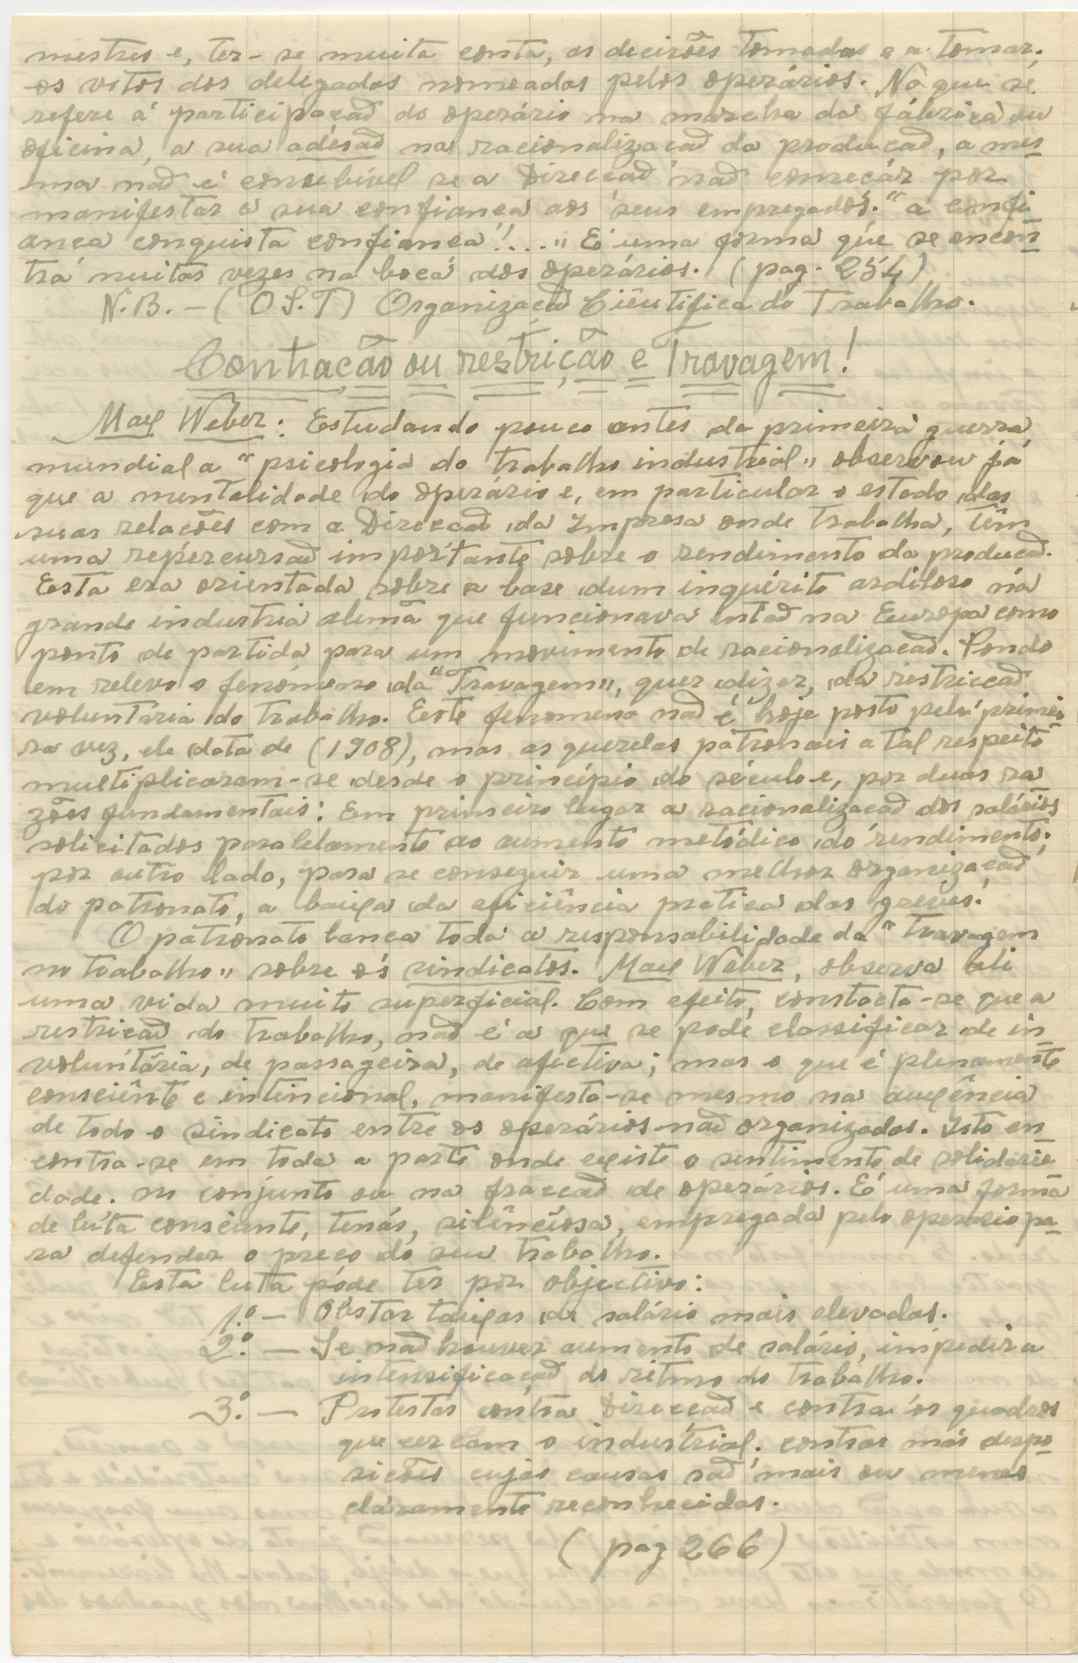 mestres e, ter-se muita conta, as decisões tomadas e a tomar.
os votos dos delegados nomeados pelos operários. No que se
refere á participaçaõ do operário na marcha da fábrica ou
oficina, a sua adesaõ na racionalizacaõ da produçaõ, a mes-
ma naõ é consebível se a Direcçaõ naõ começár por
manifestar a sua confiança aos seus empregados. "a confi
ança conquista confiança!!..." É uma forma que se encon-
tra muitas vezes na boca dos operários. (pag. 254)
N.B. - (O.S.T) Organizaçaõ Ciêntifica do Trabalho.
Contração ou restrição e Travagem!
Max Weber: Estudando pouco antes da primeira guerra
mundial a "psicologia do trabalho industrial" observou já
que a mentalidade do operário e, em particular o estado das
suas relações com a Direcçaõ da Impresa onde trabalha, têm
uma repercursaõ importante sobre o rendimento da produçaõ.
Esta era orientada sobre a base dum inquérito ardiloso na
grande industria alemã que funcionava entaõ na Europa como
ponto de partida para um movimento de racionalizaçaõ. Pondo
em relevo o fenómeno da "Travagem", quer dizer, da restricçaõ
voluntária do trabalho. Este fenomeno naõ é hoje posto pela primei
ra vez, ele data de (1908), mas as querelas patronais a tal respeito
multiplicaram-se desde o princípio do século e, por duas ra
zões fundamentais: Em primeiro lugar a racionalizaçaõ dos salários
solicitados paralelamente ao aumento metódico do rendimento;
por outro lado, para se conseguir uma melhor organizaçaõ
do patronato, a baixa da eficiência pratica das greves.
O patronato lança toda a responsabilidade da "travagem
no trabalho" sobre os sindicatos. Max Weber, observa ali
uma vida muito superficial. Com efeito, constacta-se que a
restriçaõ do trabalho, naõ é a que se pode classificar de in-
voluntária, de passageira, de afectiva; mas o que é plenamente
consciênte e intencional, manifesta-se mesmo na auxência
de todo o sindicato entre os operários naõ organizados. Isto en
contra-se em toda a parte onde existe o sentimento de solidarie
dade. no conjunto ou na fracçaõ de operários. É uma forma
de luta consciante, tenás, silênciosa, empregada pelo operario pa-
ra defender o preço do seu trabalho.
Esta luta póde ter por objectivo:
1.º - Obstar taixas de salário mais elevadas.
2.º - Se naõ houver aumento de salário, impedir a
intensificaçaõ do ritmo do trabalho.
3.º - Protestar contra Direcçaõ e contra os quadros
que cercam o industrial. contra más dispo-
sições cujas causas saõ mais ou menos
claramente reconhecidas.
(pag 266)